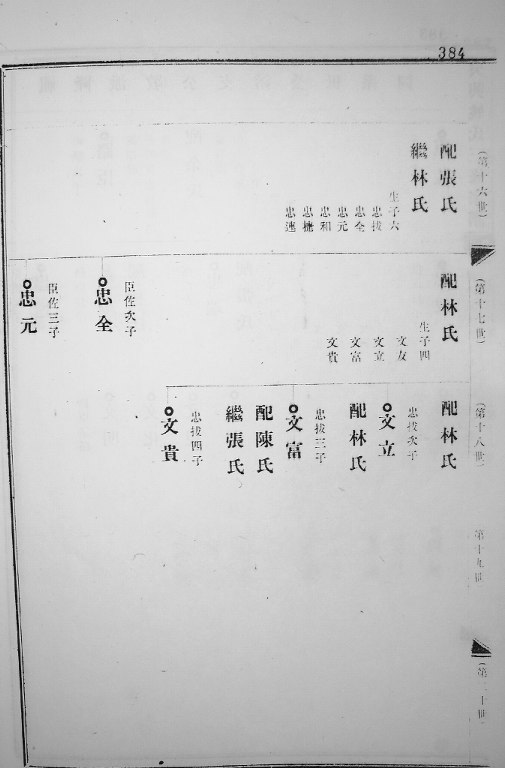 384
(第十六世)
配張氏
繼林氏
生子六
忠拔
忠全
忠元
忠和
忠
忠連
(第十七世)
配林氏
生子四
文友
文立
文富
文貴
臣佐次子
忠全
臣佐三子
忠元
(第十八世)
配林氏
忠拔次子
文立
配林氏
忠拔三子
文富
配陳氏
繼張氏
忠拔四子
文貴
第十九世
(第二十世)